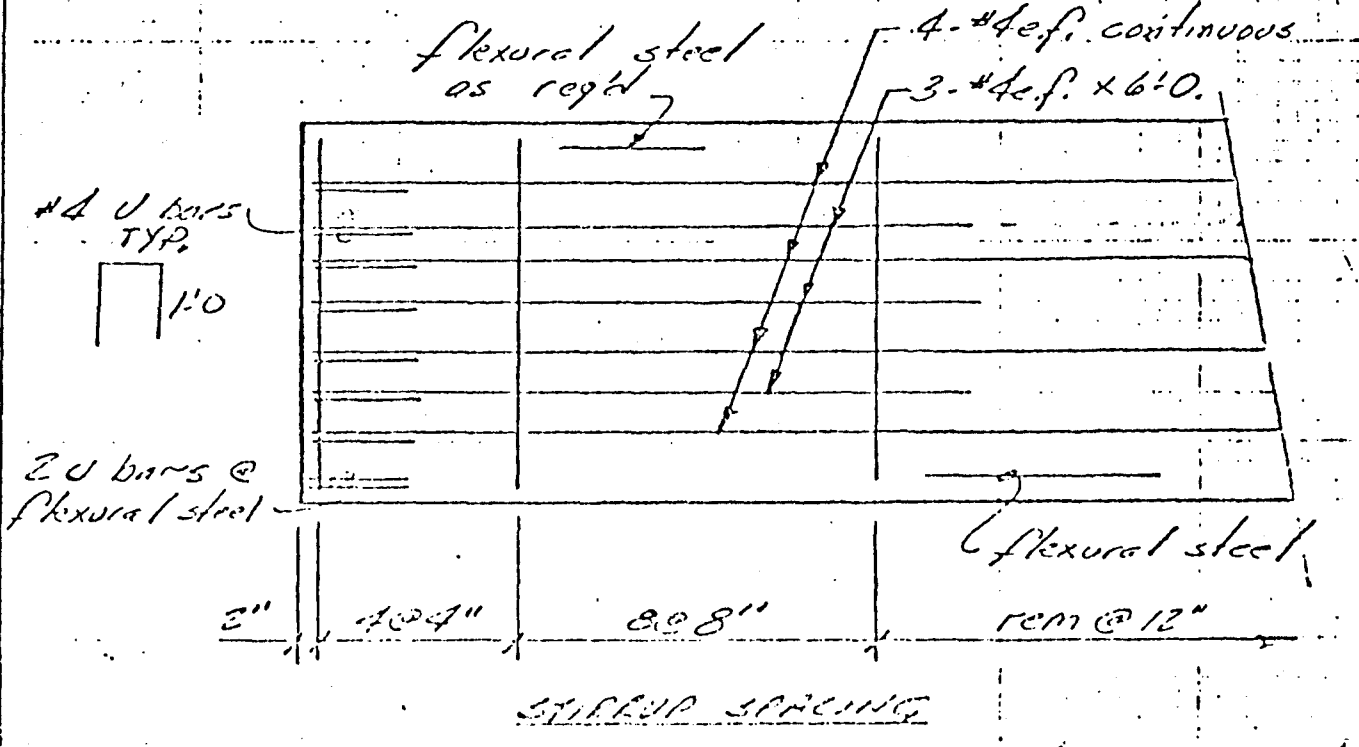 flexural steel
as req'd
4-#4 e.f. continuous
3-#4 e.f. x 6'-0.
#4 U bars
TYP.
1'-0
2 U bars @
flexural steel
flexural steel
2"
4@4"
8@8"
rem @ 12"
STIRRUP SPACING